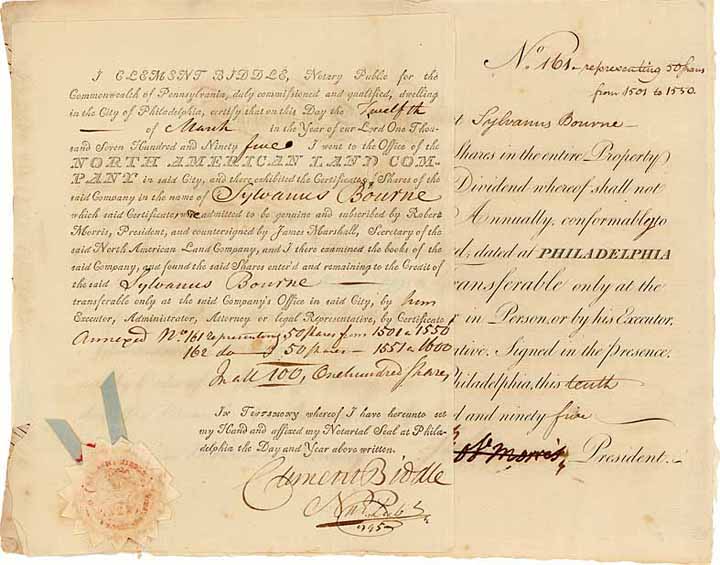 I CLEMENT BIDDLE, Notary Public for the
Commonwealth of Pennsylvania, duly commissioned and qualified, dwelling
in the City of Philadelphia, certify that on this Day the Twelfth
of March in the Year of our Lord One Thou-
sand Seven Hundred and Ninety five I went to the Office of the
NORTH AMERICAN LAND COM-
PANY in said City, and there exhibited the Certificates Shares of the
said Company in the name of Sylvanus Bourne
which said Certificates were admitted to be genuine and subscribed by Robert
Morris, President, and countersigned by James Marshall, Secretary of the
said North American Land Company, and I there examined the books of the
said Company, and found the said Shares enter'd and remaining to the Credit of
the said Sylvanus Bourne
transferable only at the said Company's Office in said City, by him
Executor, Administrator, Attorney or legal Representative, by Certificate
Annexed No. 161 representing 50 shares from 1501 a 1550
162 do 50 shares 1551 a 1600
In all 100, One hundred shares,
In Testimony whereof I have hereunto set
my Hand and affixed my Notarial Seal at Phila-
delphia the Day and Year above written.
Clement Biddle
Not. Pub.
1795
No. 161 representing 50 shares
from 1501 to 1550
t Sylvanus Bourne
Shares in the entire Property
Dividend whereof shall not
Annually, conformably to
d, dated at PHILADELPHIA
ransferable only at the
in Person, or by his Executor,
tative. Signed in the Presence,
Philadelphia, this tenth
d and ninety five
Morris President.